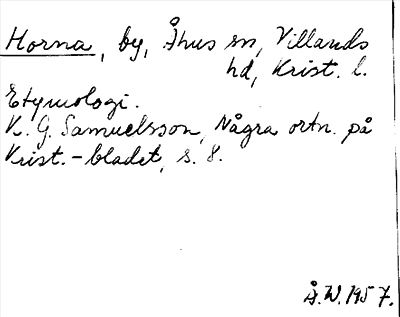 Horna, by, Åhus sn, Villands
hd, Krist. l.
Etymologi.
K. G. Samuelsson, Några ortn. på
Krist.-bladet, s. 8.
Å.W. 1957.